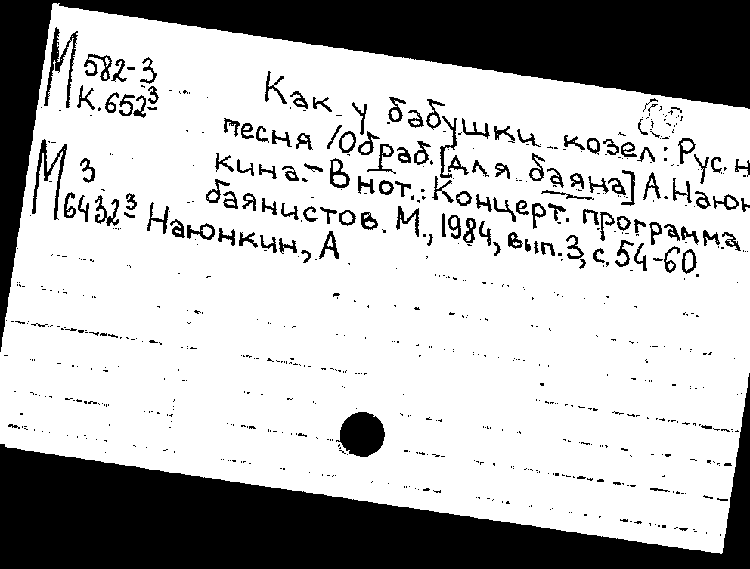 М 582-3
К.652³
89
Как у бабушки козел: Рус. н
песня /Обраб. [для баяна] А. Наюн
кина.- В нот.: Концерт. программа
баянистов. М., 1984, вып. 3, с. 54-60.
М 3
6432³ Наюнкин, А